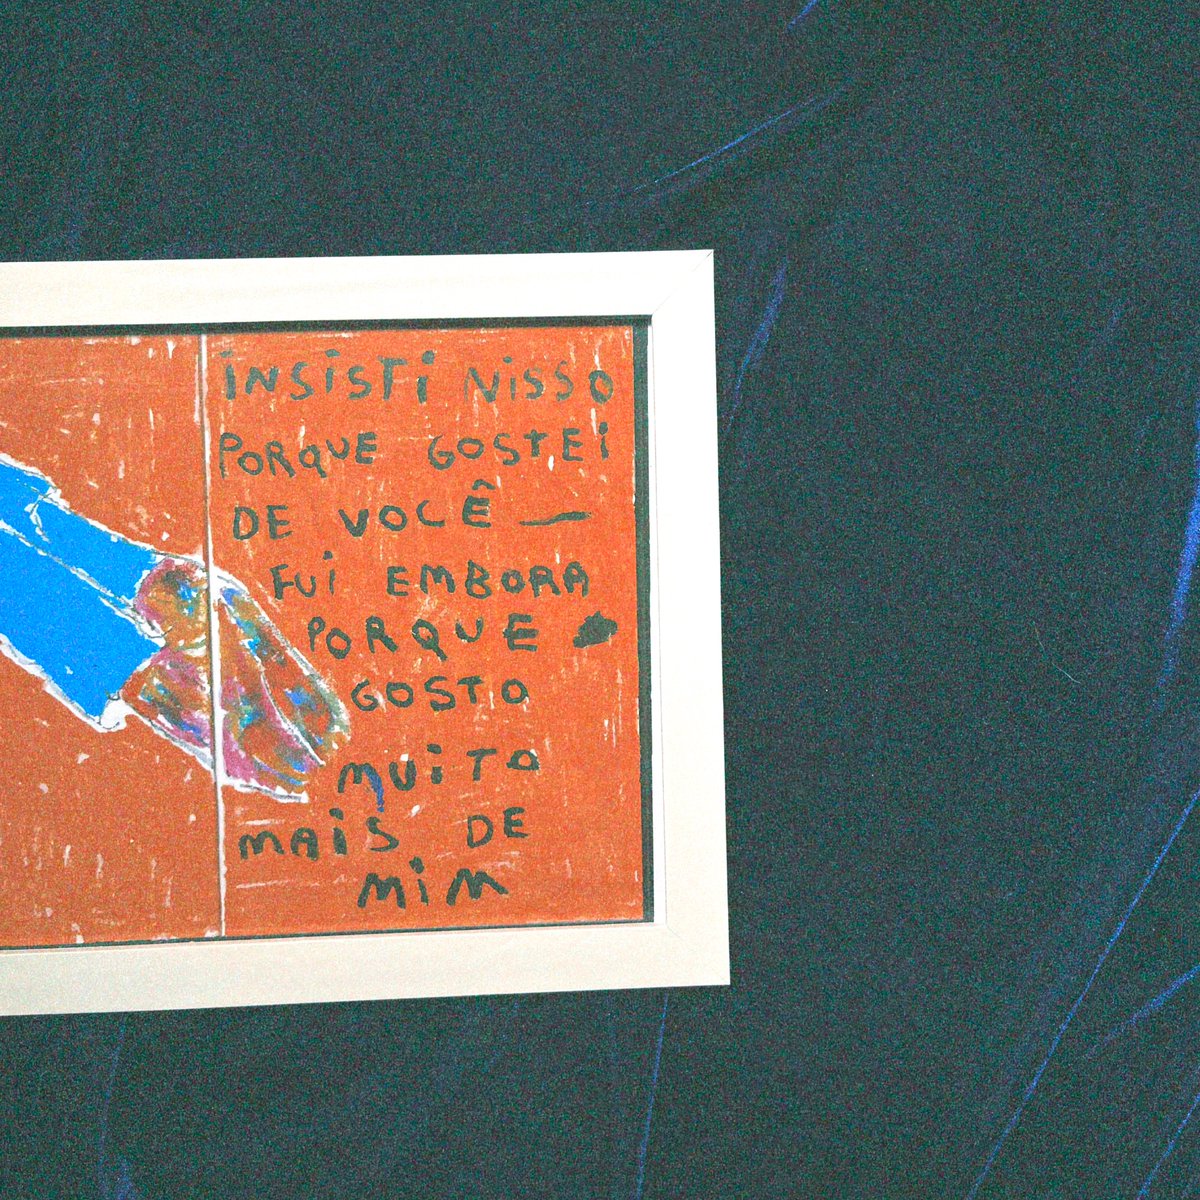 iNSiSTi NiSSO
PORQUE GOSTEi
DE VOCÊ —
FUi EMBORA
PORQUE
GOSTO
MUiTO
MAiS DE
MiM